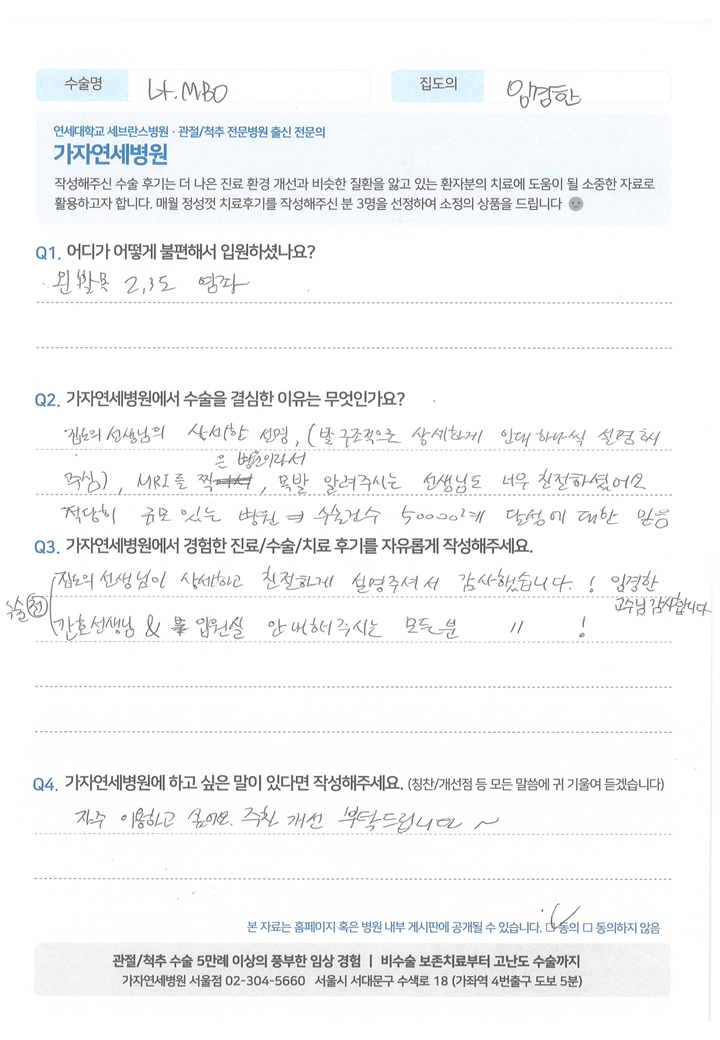 수술명 Lt. MBO 집도의 임경한
연세대학교 세브란스병원 · 관절/척추 전문병원 출신 전문의
가자연세병원
작성해주신 수술 후기는 더 나은 진료 환경 개선과 비슷한 질환을 앓고 있는 환자분의 치료에 도움이 될 소중한 자료로
활용하고자 합니다. 매월 정성껏 치료후기를 작성해주신 분 3명을 선정하여 소정의 상품을 드립니다
Q1. 어디가 어떻게 불편해서 입원하셨나요?
왼발목 2,3도 염좌
Q2. 가자연세병원에서 수술을 결심한 이유는 무엇인가요?
집도의 선생님의 상세한 설명, (발 구조적으로 상세하게 인대 하나씩 설명해
은 병원이라서
주심), MRI를 찍, 목발 알려주시는 선생님도 너무 친절하셨어요
적당히 규모 있는 병원 수술건수 50000례 달성에 대한 믿음
Q3. 가자연세병원에서 경험한 진료/수술/치료 후기를 자유롭게 작성해주세요.
집도의 선생님이 상세하고 친절하게 설명주셔서 감사했습니다. ! 임경한
수술전 교수님 감사합니다
간호선생님 & 입원실 안내해주시는 모든분 〃 !
Q4. 가자연세병원에 하고 싶은 말이 있다면 작성해주세요. (칭찬/개선점 등 모든 말씀에 귀 기울여 듣겠습니다)
자주 이용하고 싶어요. 주차 개선 부탁드립니다 ~
본 자료는 홈페이지 혹은 병원 내부 게시판에 공개될 수 있습니다. □ 동의 □ 동의하지 않음
관절/척추 수술 5만례 이상의 풍부한 임상 경험 | 비수술 보존치료부터 고난도 수술까지
가자연세병원 서울점 02-304-5660 서울시 서대문구 수색로 18 (가좌역 4번출구 도보 5분)